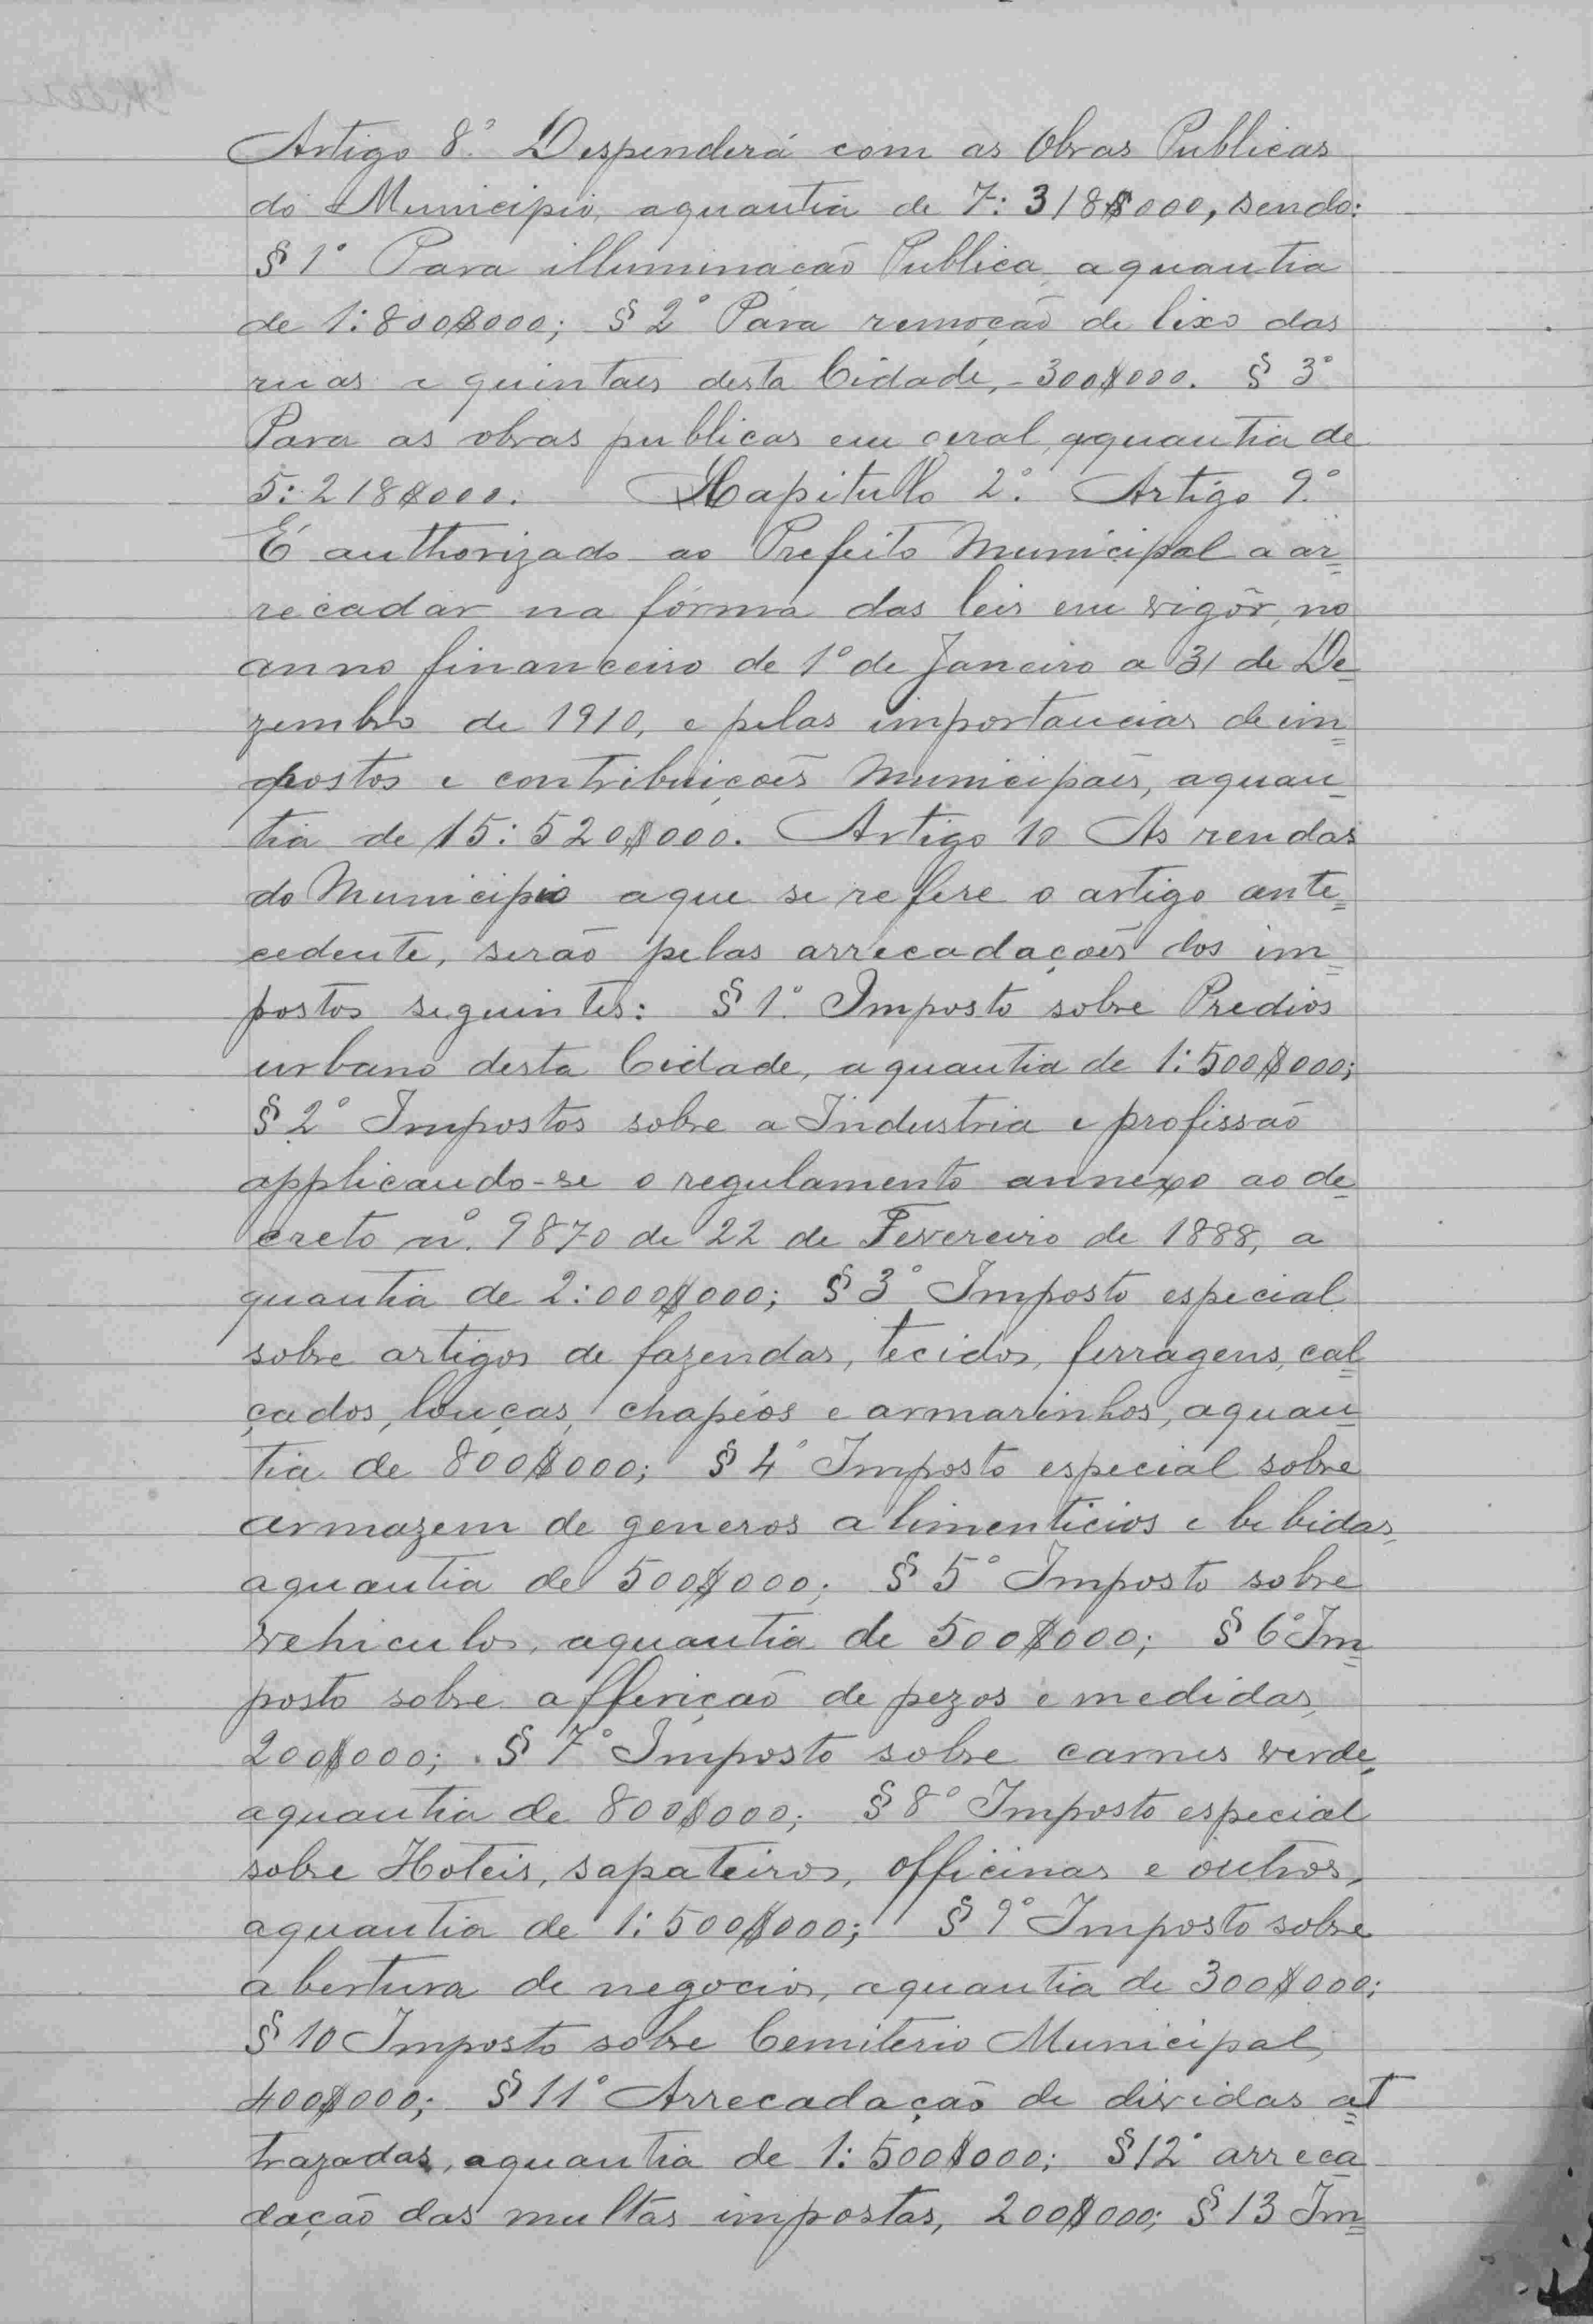 Artigo 8º Despenderá com as Obras Publicas
do Municipio, aquantia de 7:318$000, sendo:
§ 1º Para illuminação Publica, aquantia
de 1:800$000; § 2º Para remoção de lixo das
ruas e quintaes desta Cidade, - 300$000. § 3º
Para as obras publicas em geral, aquantia de
5:218$000. Capitullo 2º. Artigo 9.º
É authorizado ao Prefeito Municipal a ar=
recadar na fórma das leis em vigôr, no
anno financeiro de 1º de Janeiro a 31 de De=
zembro de 1910, e pelas importancias de im=
postos e contribuiçoẽs Municipaẽs, aquan=
tia de 15:520$000. Artigo 10 As rendas
do Municipio aque se refere o artigo ante=
cedente, serão pelas arrecadaçoẽs dos im=
postos seguintes: § 1º. Imposto sobre Predios
urbano desta Cidade, aquantia de 1:500$000;
§ 2º Impostos sobre a Industria e profissão
applicando-se o regulamento annexo ao de=
creto nº. 9870 de 22 de Fevereiro de 1888, a
quantia de 2:000$000; § 3º Imposto especial
sobre artigos de fazendas, tecidos, ferragens, cal=
çados, louças, chapéos e armarinhos, aquan=
tia de 800$000; § 4º Imposto especial sobre
armazem de generos alimenticios e bebidas,
aquantia de 500$000; § 5º Imposto sobre
vehiculos, aquantia de 500$000; § 6º Im=
posto sobre afferição de pezos e medidas,
200$000; § 7º Imposto sobre carnes verde,
aquantia de 800$000; § 8º Imposto especial
sobre Hoteis, sapateiros, officinas e outros,
aquantia de 1:500$000; § 9º Imposto sobre
abertura de negocios, aquantia de 300$000;
§ 10 Imposto sobre Cemiterio Municipal,
400$000; § 11º Arrecadação de dividas at=
trazadas, aquantia de 1:500$000; § 12º arreca
dação das multas impostas, 200$000; § 13 Im=